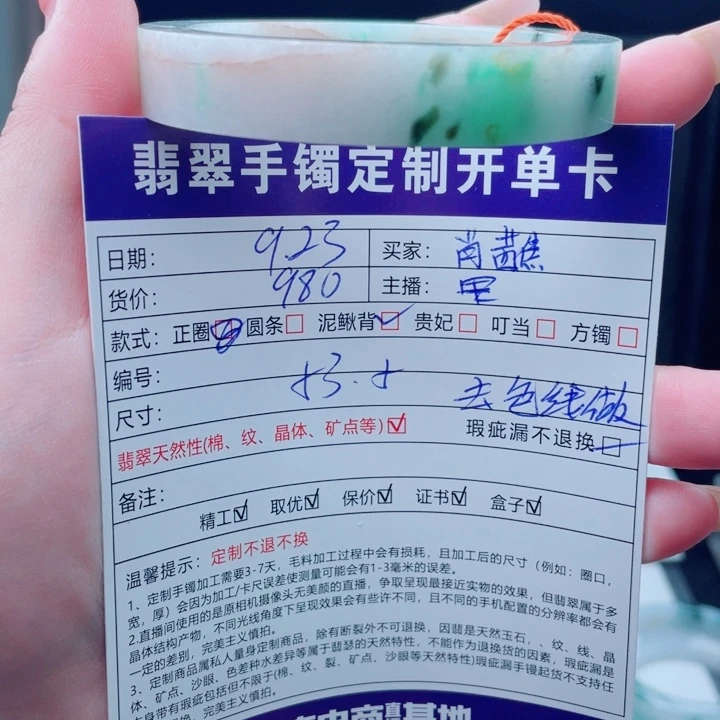 翡翠手镯定制开单卡
日期： 923 买家： 肖蘸
货价： 980 主播：
款式： 正圈□ 圆条□ 泥鳅背☑ 贵妃□ 叮当□ 方镯□
编号：
尺寸： 53.5 去色线做
翡翠天然性(棉、纹、晶体、矿点等)☑ 瑕疵漏不退换□
备注：
精工☑ 取优☑ 保价☑ 证书☑ 盒子☑
温馨提示：定制不退不换
1、定制手镯加工需要3-7天，毛料加工过程中会有损耗，且加工后的尺寸（例如：圈口，
宽，厚）会因为加工/卡尺误差使测量可能会有1-3毫米的误差。
2.直播间使用的是原相机摄像头无美颜的直播，争取呈现最接近实物的效果，但翡翠属于多
晶体结构产物，不同光线角度下呈现效果会有些许不同，且不同的手机配置的分辨率都会有
一定的差别，完美主义慎拍。
3、定制商品属私人量身定制商品，除有断裂外不可退换，因翡是天然玉石，、纹、线、晶
体、矿点、沙眼、色差种水差异等属于翡瑟的天然特性，不能作为退换货的因素，瑕疵漏是
身带有瑕疵包括但不限于(棉、纹、裂、矿点、沙眼等天然特性)瑕疵漏手镯起货不支持任
完美主义慎拍。
电商直播基地